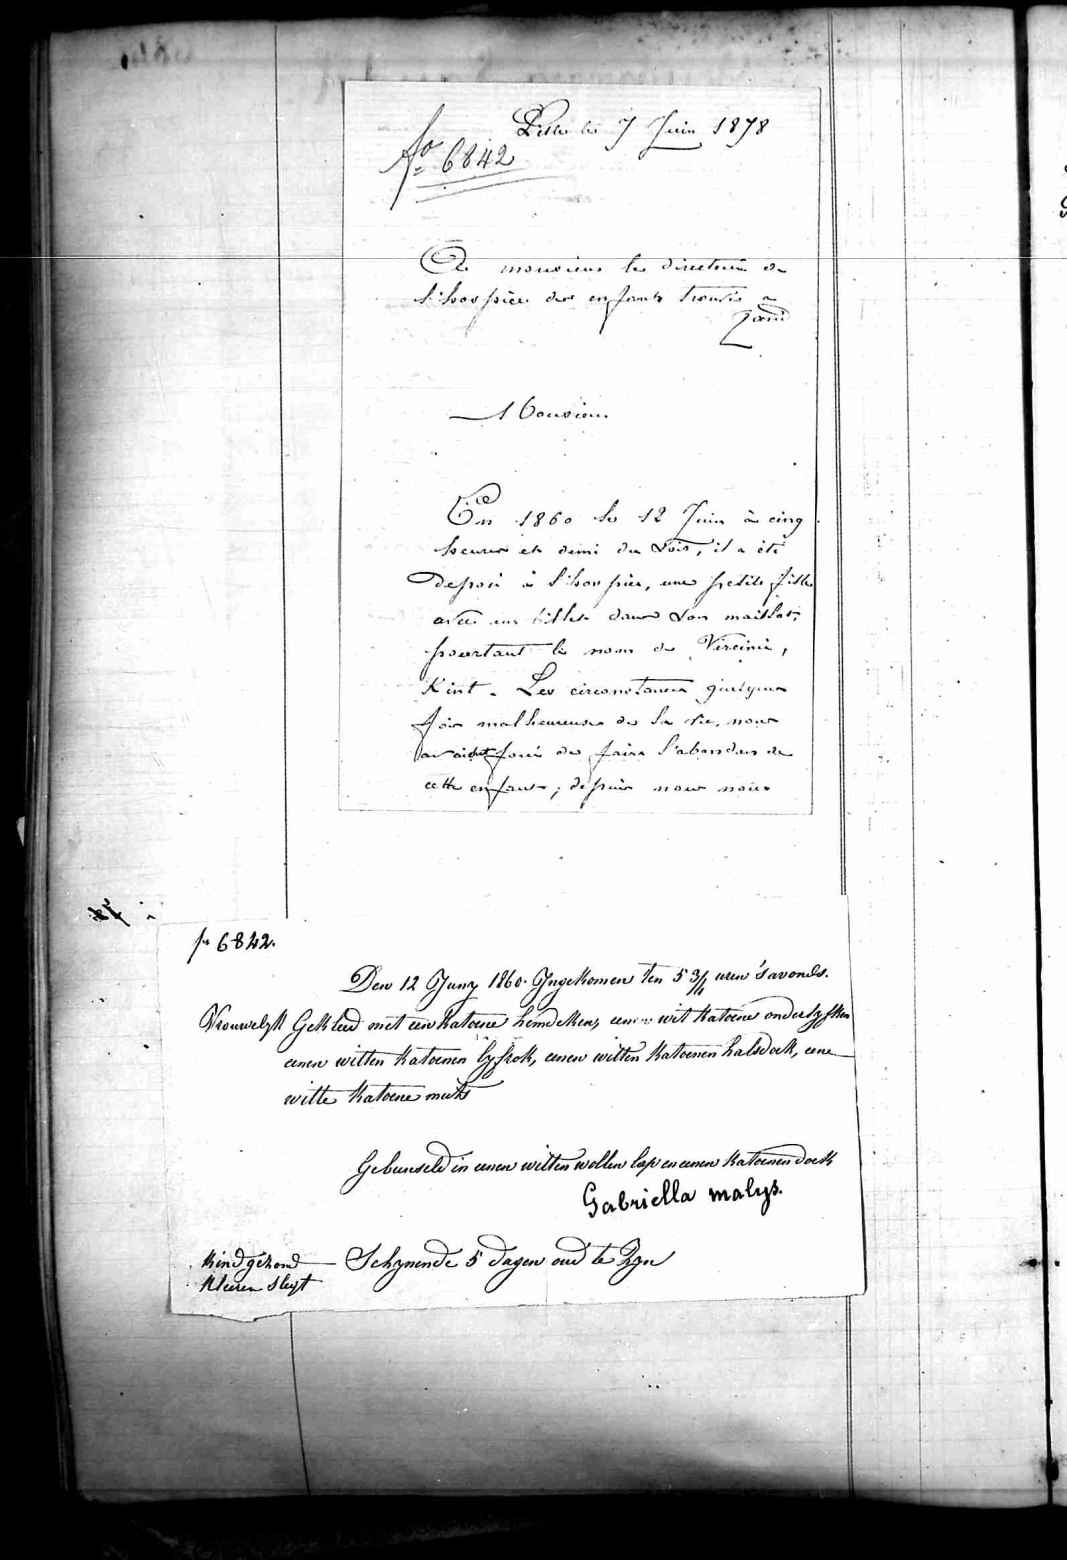 Lille le 7 Juin 1878
No 6842
A monsieur le directeur de
l'hospice des enfants trouvés a
Gand
Monsieur
En 1860 le 12 Juin à cinq
heures et demi du Soir, il a été
déposé à l'hospice, une petite fille
avec un billet dans son maillot,
pourtant le nom de Vircinie,
Kint. Les circonstances quelques
fois malheureuses de la vie, nous
avaient forcé de faire l'abandon de
cette enfant; depuis nous nous
No 6842.
Den 12 Juny 1860. Ingekomen ten 5 3/4 uren 's avonds.
Vrouwelyk Gekleed met een katoene hemdeken, eenen wit katoene onderlyfken
eenen witten katoenen lyfrok, eenen witten katoenen halsdoek, eene
witte katoene muts
Gebunseld in eenen witten wollen lap en eenen katoenen doek
Gabriella malys.
Kind gezond Schynende 5 dagen oud te Zyn
Kleeren slegt